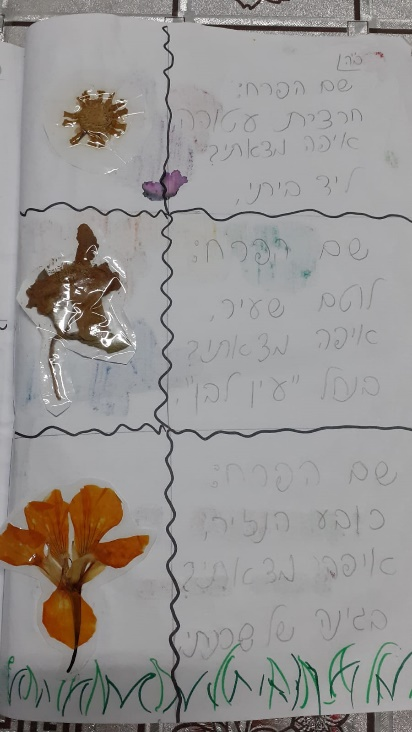 בה"ן
שם הפרח:
חרצית עטורה
איפה מצאתי?
ליד ביתי.
שם הפרח:
לוטם שעיר.
איפה מצאתי?
בנחל "עין לבן".
שם הפרח:
כובע הנזיר.
איפה מצאתי?
בגינה של שכנתי.